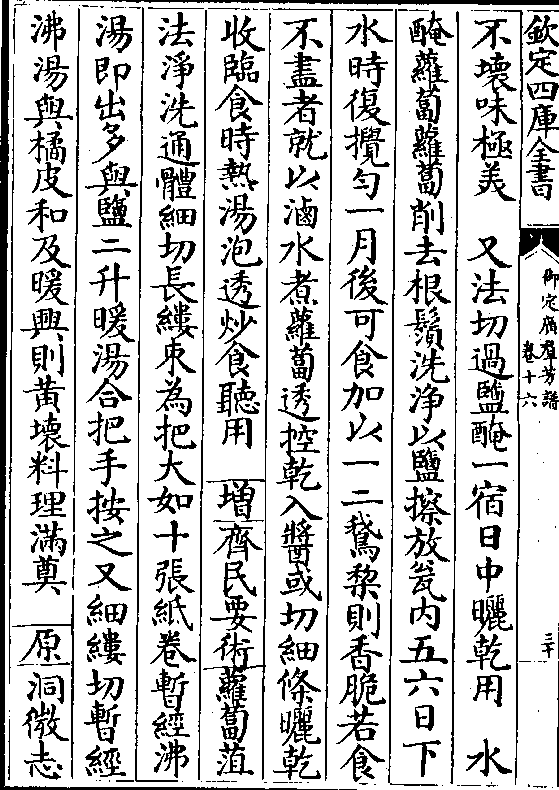 欽定四庫全書
御定廣羣芳譜
卷十六
三十
不壞味極美　又法切過鹽醃一宿日中曬乾用　水
醃蘿蔔蘿蔔削去根鬚洗淨以鹽擦放瓮内五六日下
水時復攪匀一月後可食加以一二鵞棃則香脆若食
不盡者就以滷水煮蘿蔔透控乾入醬或切細條曬乾
收臨食時熱湯泡透炒食聽用　增齊民要術蘿蔔菹
法淨洗通體細切長縷束為把大如十張紙卷暫經沸
湯即出多與鹽二升暖湯合把手按之又細縷切暫經
沸湯與橘皮和及暖與則黄壞料理滿奠　原洞微志